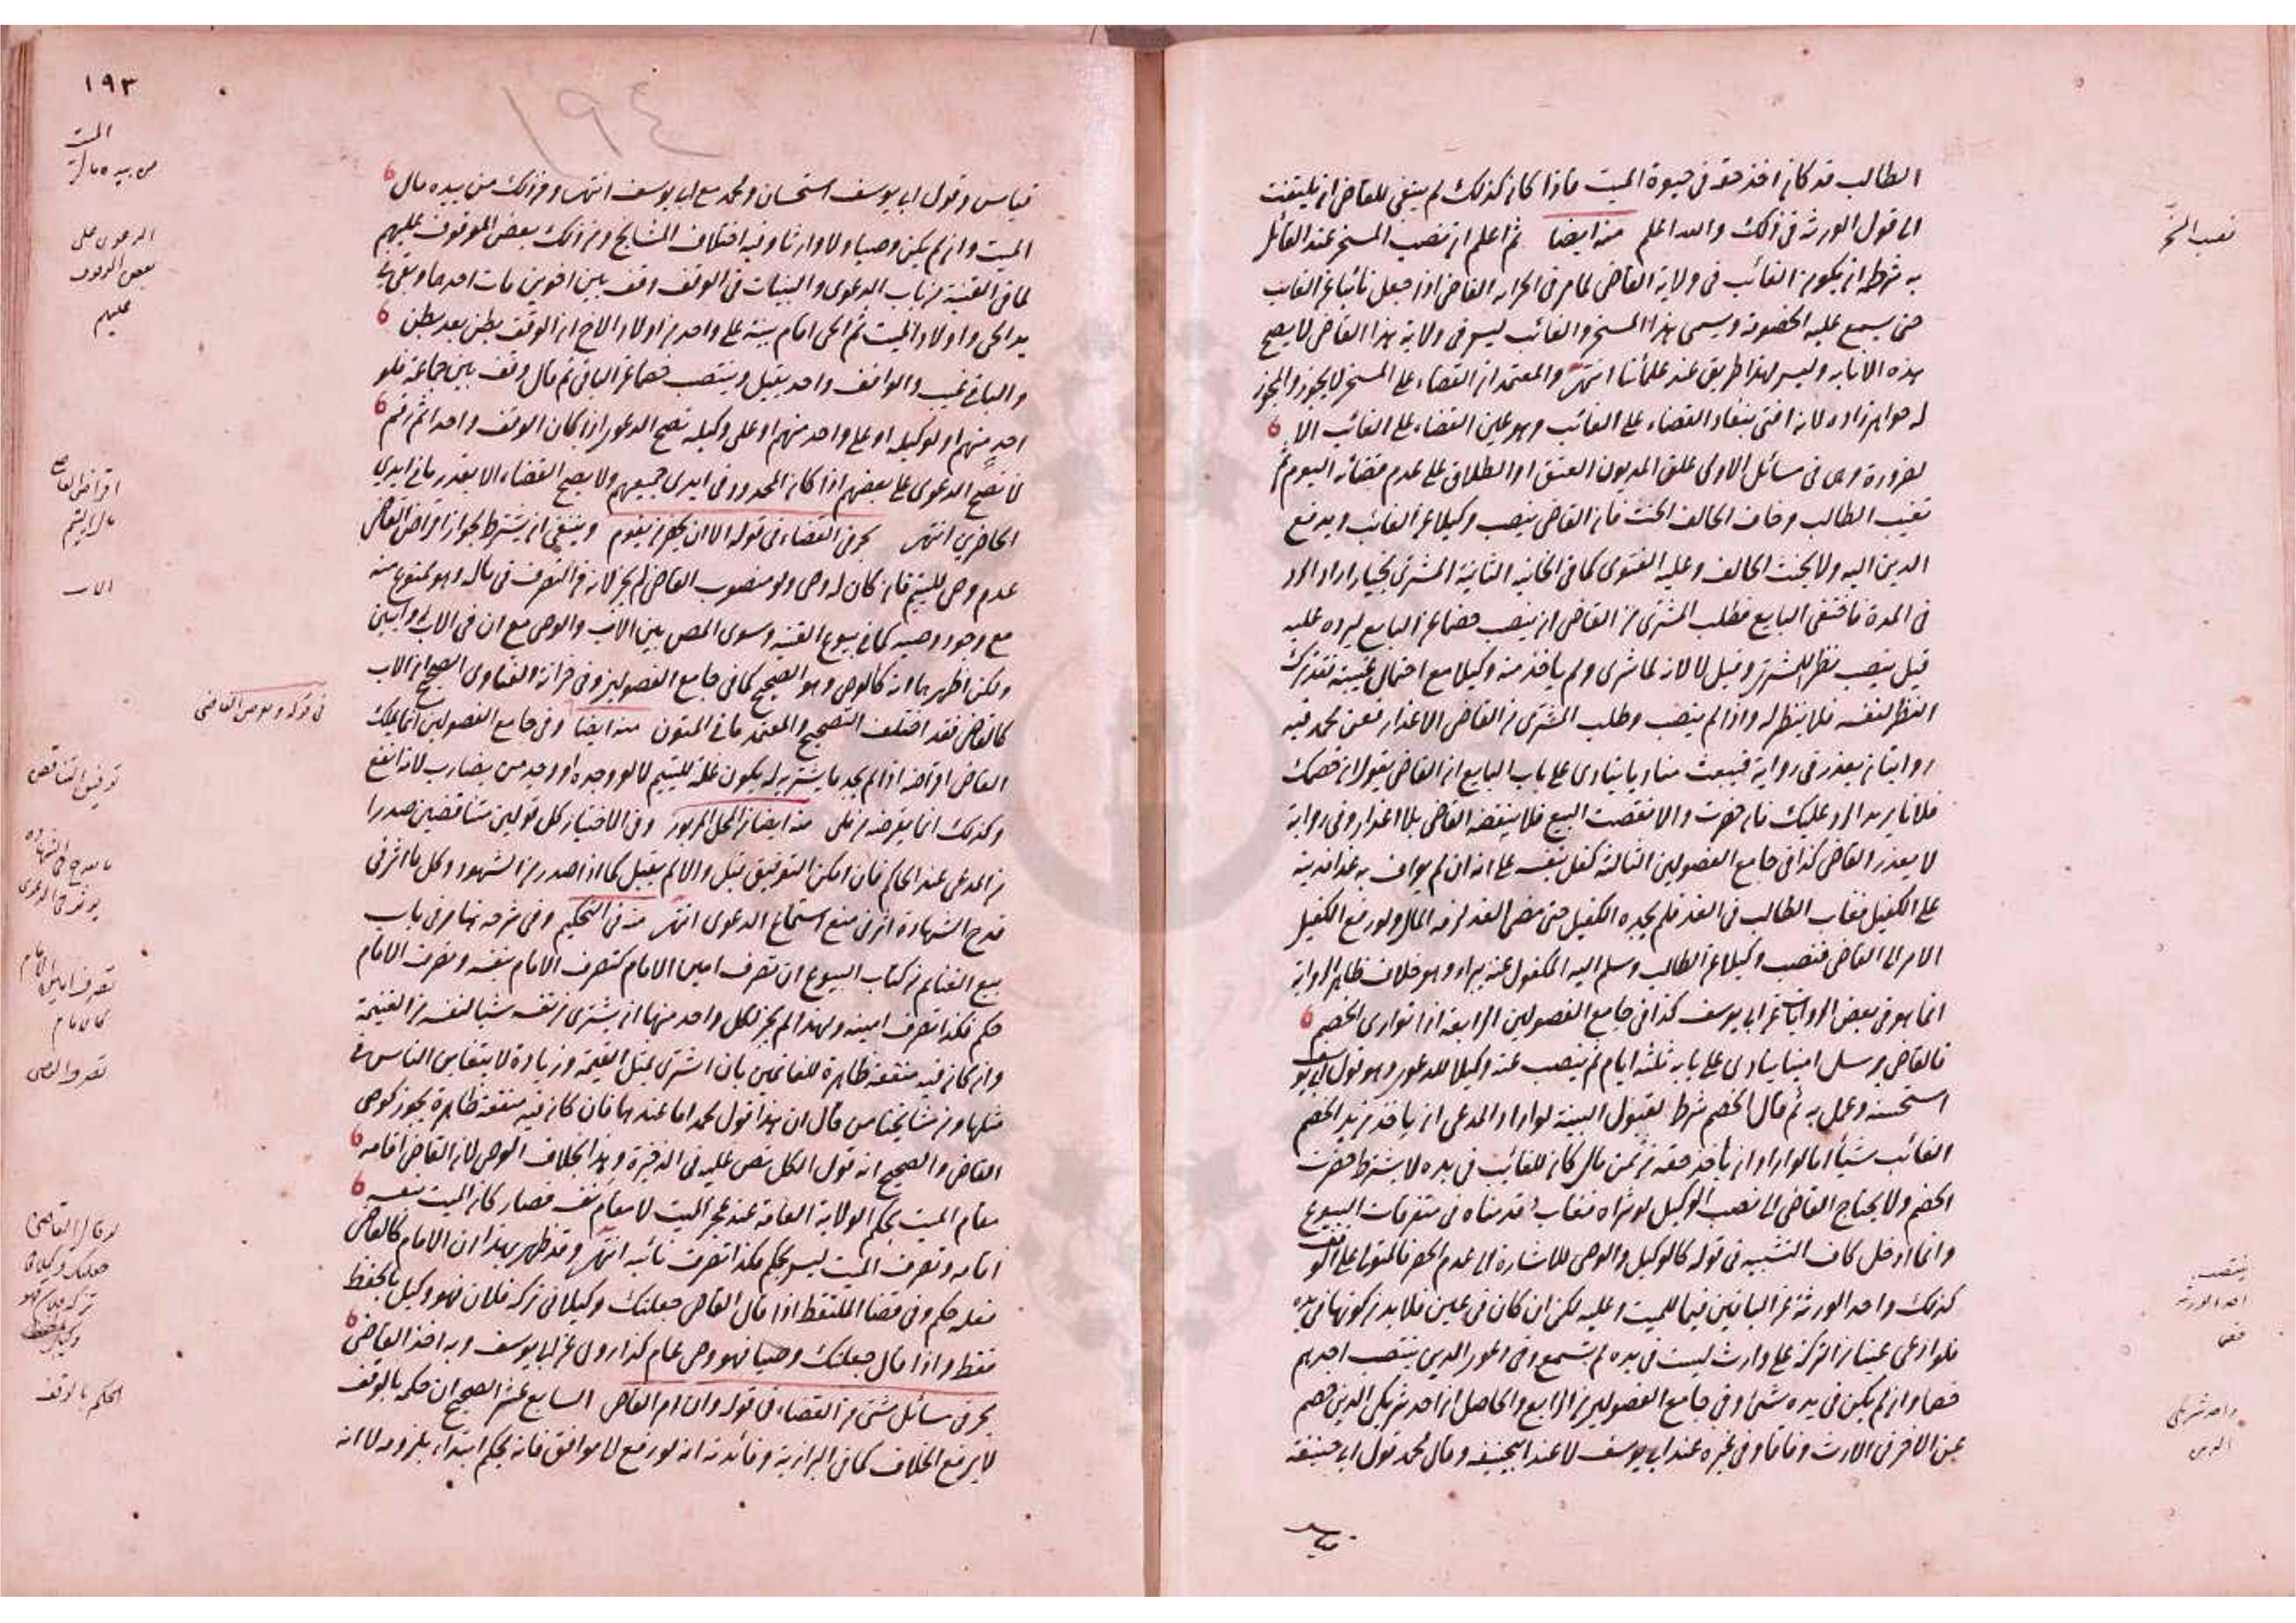 الطالب قد كان اخذ حقه فى حيوة الميت فاذا كان كذلك لم ينبغى للقاضى ان يلتفت
الى قول الورثة فى ذلك والله اعلم منه ايضا ثم اعلم ان نصب المسخر عند القائل
به شرطه ان يكون الغائب فى ولاية القاضى لما مر فى الخزانه القاضى اذا جعل نائبا عن الغائب
حتى يسمع عليه الخصومة ويسمى هذا المسخر والغائب ليس فى ولاية هذا القاضى لا يصح
هذه الانابه وليس لهذا طريق عند علمائنا انتهى والمعتمد ان القضاء على المسخر لا يجوز والمجوز
له خواهرزاده لانه افتى بنفاد القضاء على الغائب وهو عين القضاء على الغائب الا
لضرورة وهى فى مسائل الاولى علق المديون العتق او الطلاق على عدم قضائه اليوم ثم
تغيب الطالب وخاف الحالف الحنث فان القاضى ينصب وكيلا عن الغائب ويدفع
الدين اليه ولا يحنث الحالف وعليه الفتوى كما فى الخانيه الثانية المشترى بخيار اراد الرد
فى المدة فاختفى البايع فطلب المشترى من القاضى ان ينصب خصما عن البايع ليرده عليه
قيل ينصب نظرا للمشترى وقيل لا لانه لما شرى ولم ياخذ منه وكيلا مع احتمال غيبته فقد ترك
النظر لنفسه فلا ينظر له واذا لم ينصب وطلب المشترى من القاضى الاعذار فعن محمد فيه
روايتان يعذر فى رواية فيبعث مناديا ينادى على باب البايع ان القاضى يقول ان خصمك
فلانا يريد الرد عليك فان حضرت والا نقضت البيع فلا ينقضه القاضى بلا اعذار وفى رواية
لا يعذر القاضى كذا فى جامع الفصولين الثالثة كفل بنفسه على انه ان لم يواف به غدا فدينه
على الكفيل فغاب الطالب فى الغد فلم يجده الكفيل حتى مضى الغد لزمه المال ولو رفع الكفيل
الامر الى القاضى فنصب وكيلا عن الطالب وسلم اليه المكفول عنه يبرا وهو خلاف ظاهر الرواية
انما هو فى بعض الروايات عن ابى يوسف كذا فى جامع الفصولين الرابعة اذا توارى الخصم
فالقاضى يرسل امينا ينادى على بابه ثلثه ايام ثم ينصب عنه وكيلا للدعوى وهو قول ابى يوسف
استحسنه وعمل به ثم قال الخصم شرط لقبول البينة لو اراد المدعى ان ياخذ من يد الخصم
الغائب شيأ اما لو اراد ان ياخذ حقه من ثمن مال كان للغائب فى يده لا يشترط حضرت
الخصم ولا يحتاج القاضى الى نصب الوكيل لو شراه فغاب وقدمناه فى متفرقات البيوع
وانما ادخل كاف التشبيه فى قوله كالوكيل والوصى للاشارة الى عدم الحصر فالمتولى على الوقف
كذلك واحد الورثة عن الباقين فيما للميت وعليه لكن ان كان فى عين فلا بد من كونها فى يده
فلو ادعى عينا من التركة على وارث ليست فى يده لم تسمع وفى دعوى الدين ينتصب احدهم
خصما وان لم يكن فى يده شئ وفى جامع الفصولين من الرابع والحاصل ان احد شريكى الدين خصم
عن الاخر فى الارث وفاقا وفى غيره عند ابى يوسف لا عند ابيحنيفه وقال محمد قول ابى حنيفة
قياس
نصب المسخر
ينتصب
احد الورثة
خصم
واحد شريكى
الدين
١٩٣
١٩٤
قياس وقول ابى يوسف استحسان ومحمد مع ابى يوسف انتهى ومن ذلك من بيده مال
الميت وان لم يكن وصيا ولا وارثا وفيه اختلاف المشايخ ومن ذلك بعض الموقوف عليهم
لما فى القنية من باب الدعوى والبينات فى الوقف وقف بين اخوين مات احدهما وبقى فى
يد الحى واولاد الميت ثم الحى اقام بينة على واحد من اولاد الاخ ان الوقف بطن بعد بطن
والباقى غيب والواقف واحد يقبل وينتصب خصما عن الباقى ثم قال وقف بين جماعة فلو
احد منهم او لوكيله او على واحد منهم او على وكيله تصح الدعوى اذا كان الوقف واحد اثم رقم
لا تصح الدعوى على بعضهم اذا كان المحدود فى ايدى جميعهم ولا يصح القضاء الا بقدر ما فى ايدى
الحاضرين انتهى بحر فى القضاء فى قوله الا ان يحضر من يقوم وينبغى ان يشترط لجواز اقراض القاضى
عدم وصى لليتيم فان كان له وصى ولو منصوب القاضى لم يجز لانه من التصرف فى ماله وهو ممنوع منه
مع وجود وصيه كما فى بيوع القنية وسوى المص بين الاب والوصى مع ان فى الاب روايتين
ولكن اظهرهما انه كالوصى وهو الصحيح كما فى جامع الفصولين وفى خزانة الفتاوى الصحيح ان الاب
كالقاضى فقد اختلف التصحيح والمعتمد ما فى المتون منه ايضا وفى جامع الفصولين انما يملك
القاضى اقراضه اذا لم يجد ما يشتريه له يكون غلة لليتيم لا لو وجده او وجد من يضارب لانه انفع
وكذلك انما يقرضه من ملى منه ايضا من المحل المزبور وفى الاختيار كل قولين متناقضين صدرا
من المدعى عند الحاكم فان امكن التوفيق قبل والا لم يقبل كما اذا صدر من الشهود وكل ما اثر فى
قدح الشهادة اثر فى منع استماع الدعوى انتهى منه فى التحكيم وفى شرحه نهاية فى باب
بيع الغنائم من كتاب البيوع ان تصرف امين الامام كتصرف الامام بنفسه وتصرف الامام
حكم فكذا تصرف امينه ولهذا لم يجز لكل واحد منهما ان يشترى من نفسه شيأ لنفسه من الغنيمة
وان كان فيه منفعة ظاهرة للغانمين بان اشترى بمثل القيمة وزيادة لا يتغابن الناس فى
مثلها ومن مشايخنا من قال ان هذا قول محمد اما عندهما فان كان فيه منفعة ظاهرة يجوز كوصى
القاضى والصحيح انه قول الكل نص عليه فى الذخيرة وهذا بخلاف الوصى لان القاضى اقامه
مقام الميت بحكم الولاية العامة عند عجز الميت لا مقام نفسه فصار كان الميت بنفسه
اقامه وتصرف الميت ليس بحكم فكذا تصرف نائبه انتهى وقد ظهر بهذا ان الامام كالقاضى
فعله حكم وفى قضاء الملتقط اذا قال القاضى جعلتك وكيلا فى تركة فلان فهو وكيل بالحفظ
فقط واذا قال جعلتك وصيا فهو وصى عام كذا روى عن ابى يوسف وبه اخذ القاضى
بحر فى مسائل شتى من القضاء فى قوله وان امر القاضى السابع عشر الصحيح ان حكمه بالوقف
لا يرفع الخلاف كما فى البزازية وفائدته انه لو رفع الى موافق فانه يحكم ابتداء بلزومه لا انه
الميت
من بيده مال
الدعوى على
بعض الموقوف
عليهم
اقراض القاضى
مال اليتيم
الاب
توفيق التناقض
تصرف امين الامام
كالامام
لو قال القاضى
جعلتك وكيلا فى
تركة فلان فهو
وكيل بالحفظ
الحكم بالوقف